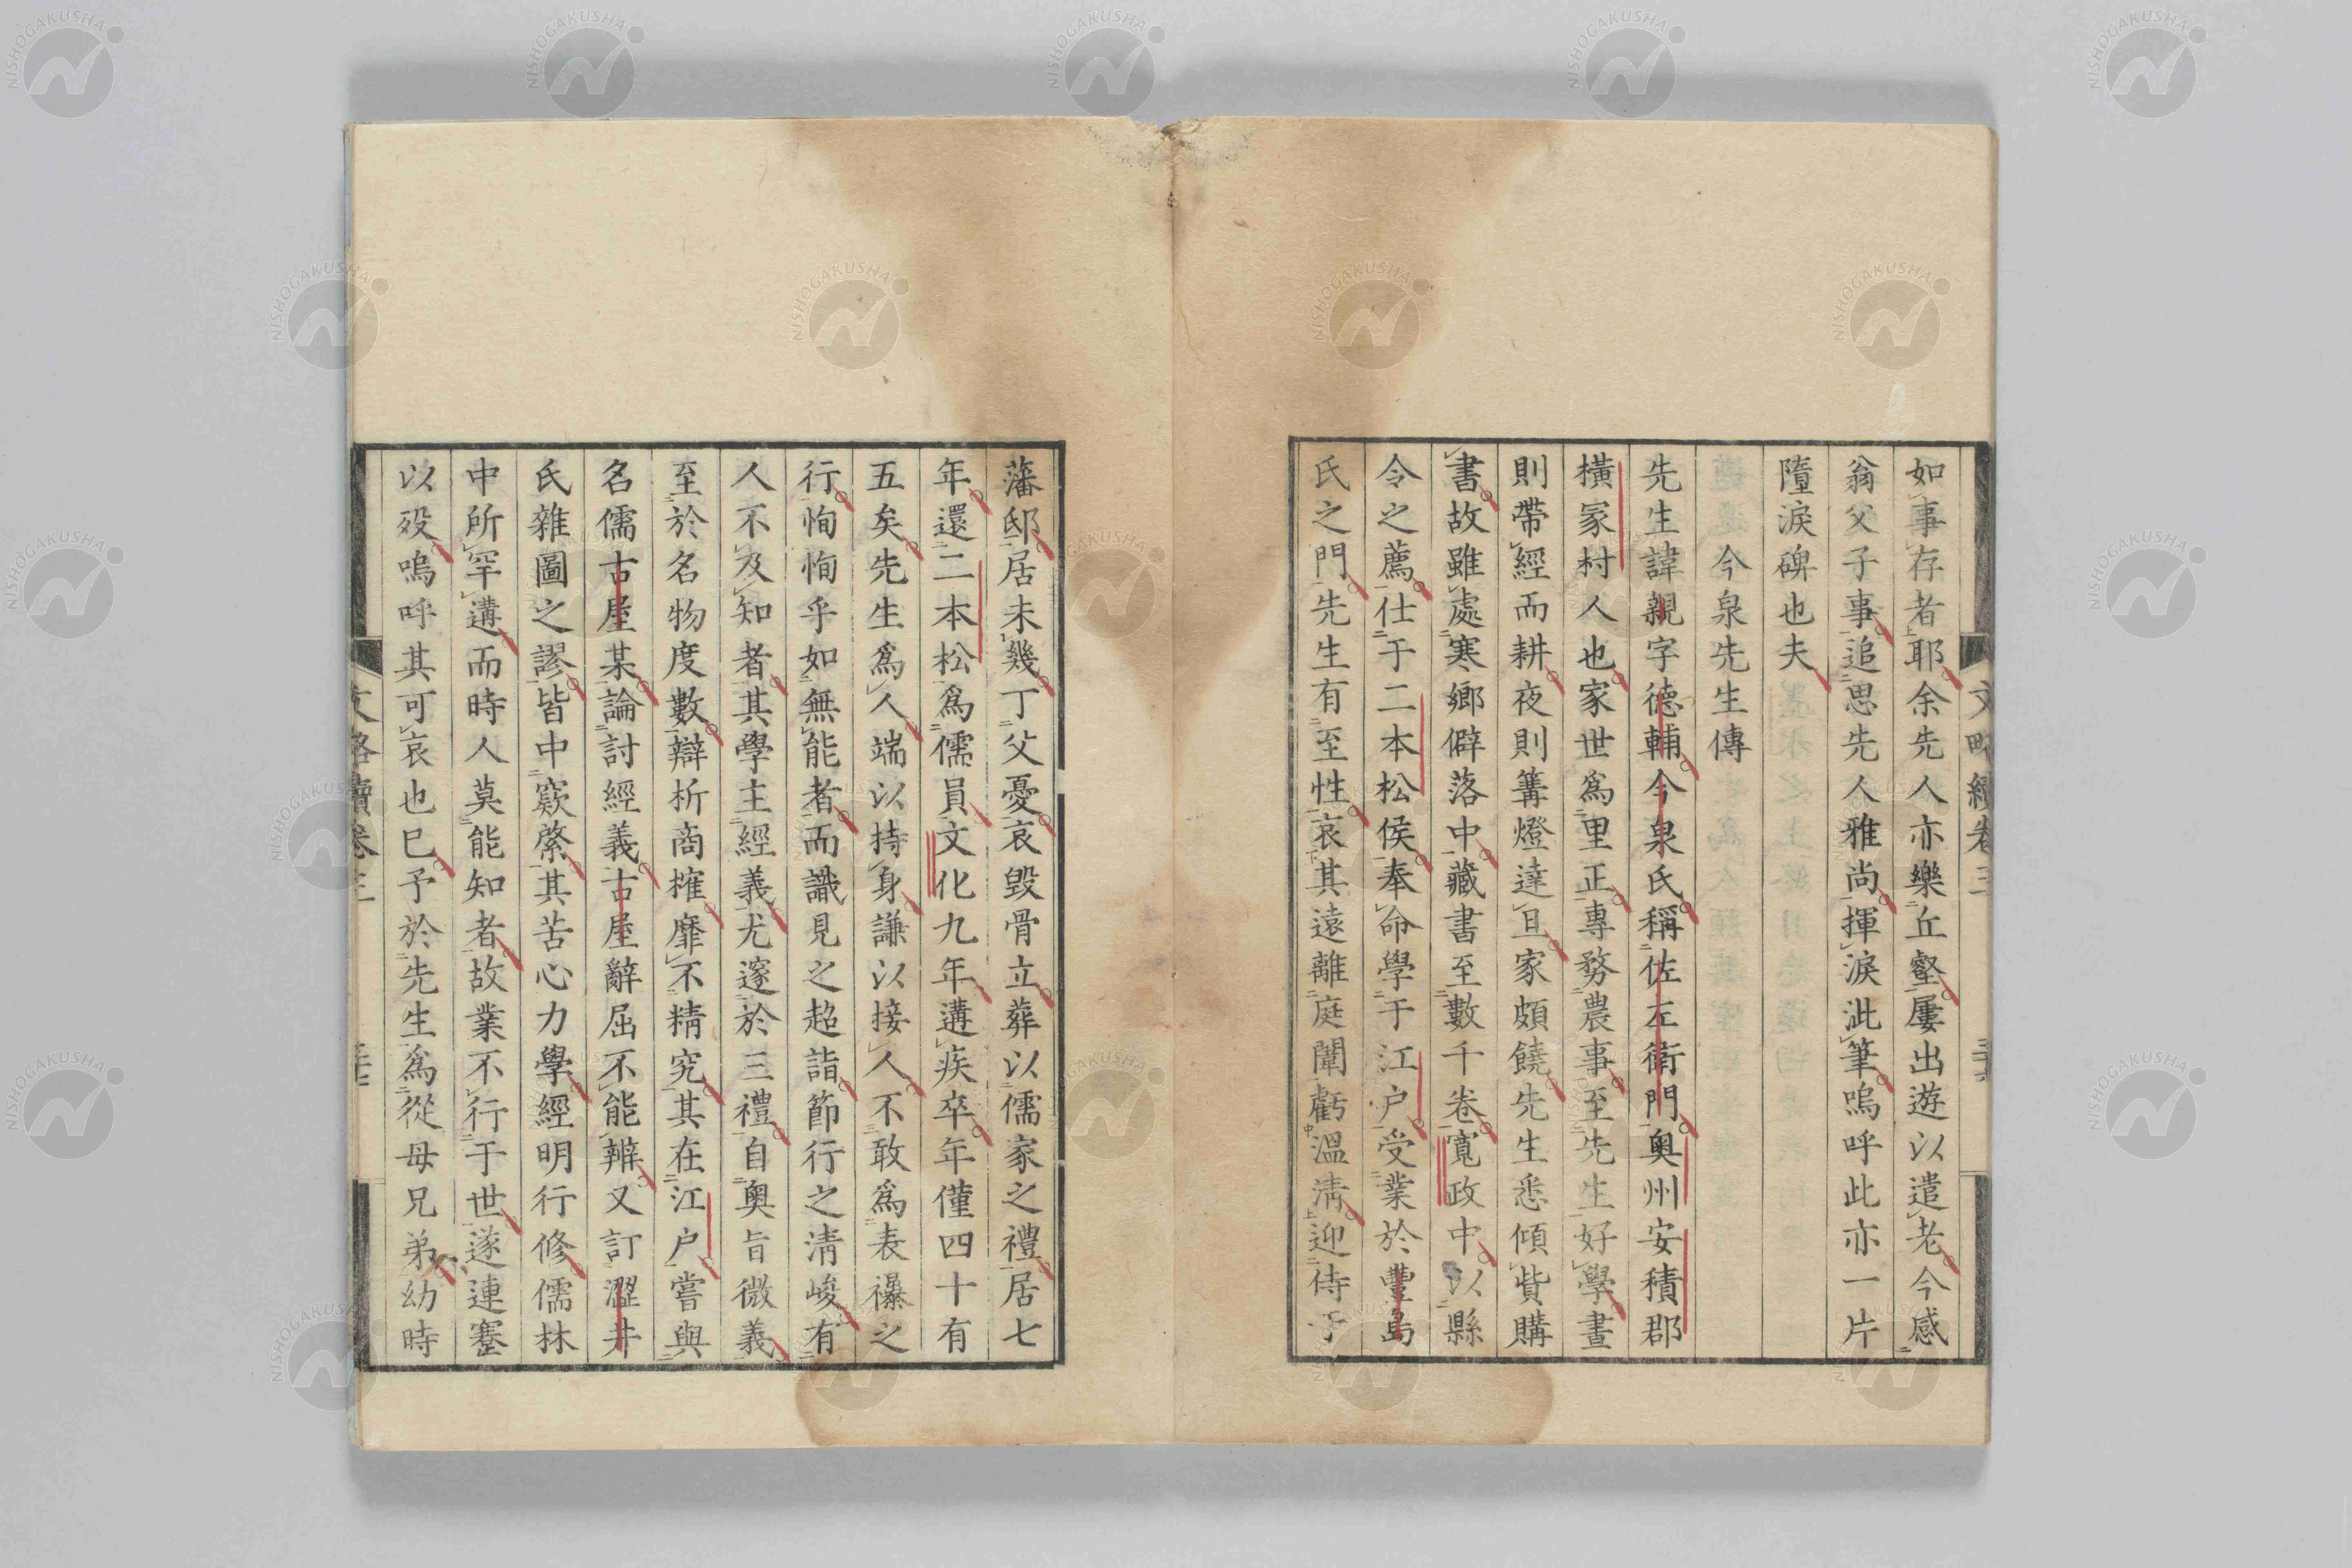 如事存者耶余先人亦樂丘壑屢出遊以遣老今感
翁父子事追思先人雅尚揮淚泚筆嗚呼此亦一片
墮淚碑也夫
今泉先生傳
先生諱親字德輔今泉氏稱佐左衛門奧州安積郡
橫冢村人也家世爲里正專務農事至先生好學晝
則帶經而耕夜則篝燈達旦家頗饒先生悉傾貲購
書故雖處寒鄉僻落中藏書至數千卷寬政中以縣
令之薦仕于二本松侯奉命學于江户受業於豐島
氏之門先生有至性哀其遠離庭闈虧溫凊迎侍于
藩邸居未幾丁父憂哀毀骨立葬以儒家之禮居七
年還二本松爲儒員文化九年遘疾卒年僅四十有
五矣先生爲人端以持身謙以接人不敢爲表襮之
行恂恂乎如無能者而識見之超詣節行之清峻有
人不及知者其學主經義尤邃於三禮自奧旨微義
至於名物度數辯析商搉靡不精究其在江户嘗與
名儒古屋某論討經義古屋辭屈不能辨又訂澀井
氏雜圖之謬皆中窾綮其苦心力學經明行修儒林
中所罕遘而時人莫能知者故業不行于世遂連蹇
以歿嗚呼其可哀也已予於先生爲從母兄弟幼時
文略續卷三
文略續卷三
NISHOGAKUSHA